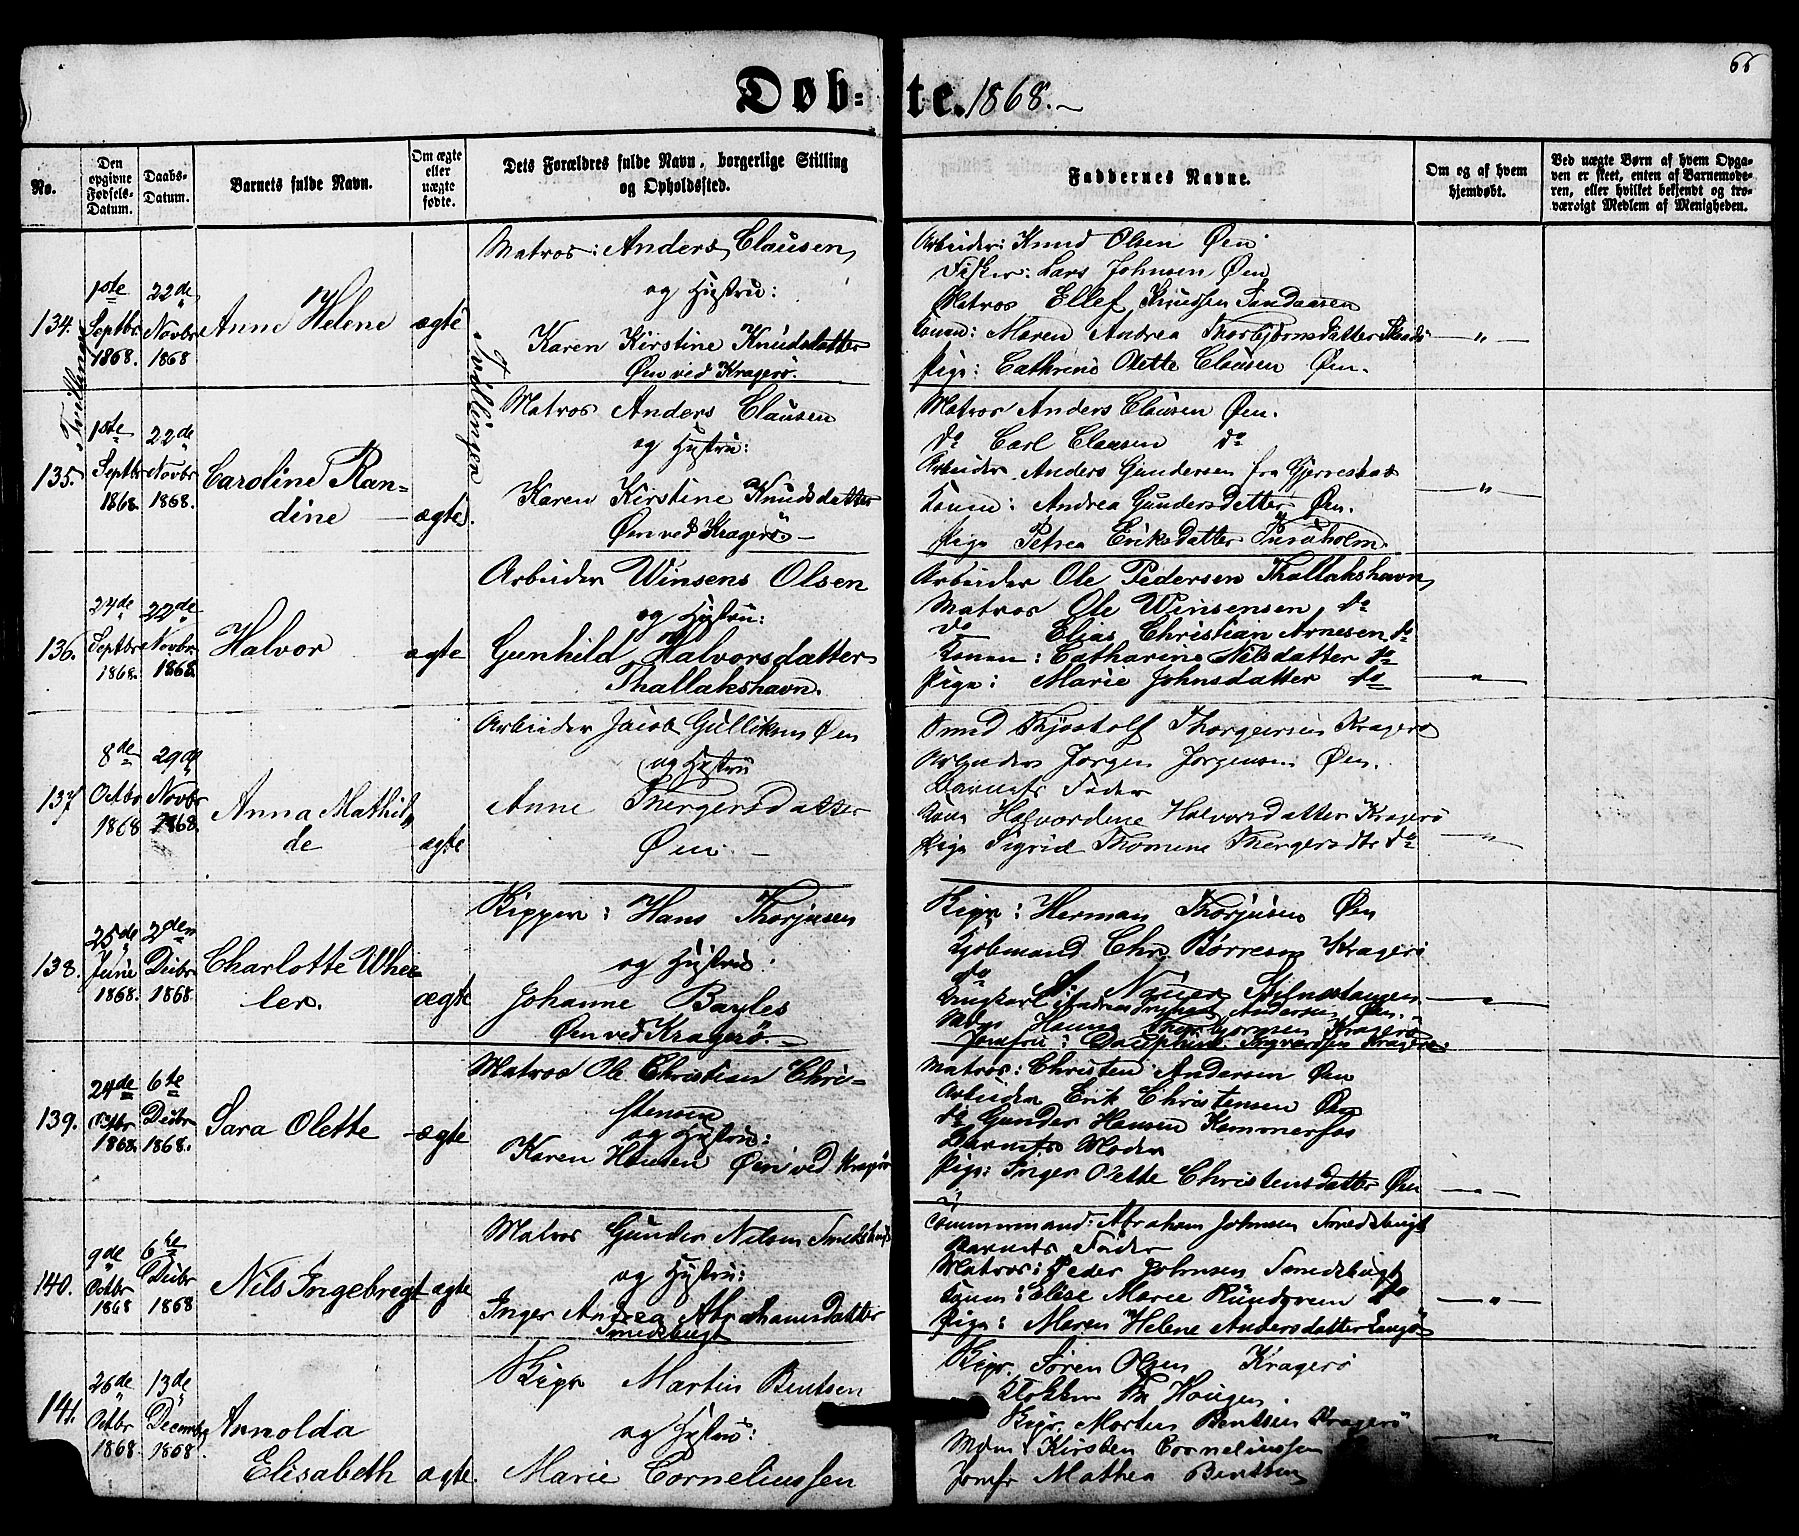 66
Døb- te. 1868.
No.
Den opgivne Fødsels-Datum.
Daabs-Datum.
Barnets fulde Navn.
Om ægte eller uægte fødte.
Dets Forældres fulde Navn, borgerlige Stilling og Opholdssted.
Faddernes Navne.
Om og af hvem hjemdøbt.
Ved uægte Børn af hvem Opga-
ven er skeet, enten af Barnemode-
ren, eller hvilket bekjendt og tro-
værdigt Medlem af Menigheden.
134.
1ste Septbr 1868.
22de Novbr 1868
Anne Helene
ægte
Tvillinger
Matros: Anders Clausen
og Hustru:
Karen Kirstine Knudsdatter
Øen ved Kragerö.
Arbeider: Knud Olsen Øen
Fisker: Lars Johnsen Øen
Matros Ellef Knudsen Sandaasen
Konen: Maren Andrea Thorbjörnsdatter
Pige: Cathrine Olette Clausen Øen.
"
135.
1ste Septbr 1868.
22de Novbr 1868.
Caroline Ran-
dine
ægte.
Tvillinger
Matros Anders Clausen
og Hustru:
Karen Kirstine Knudsdatter
Øen ved Kragerö
Matros Anders Clausen Øen.
do Carl Clausen do
Arbeider Anders Gundersen fra
Konen: Andrea Gundersdatter Øen.
Pige Petrea Eriksdatter
"
136.
24de Septbr 1868.
22de Novbr 1868.
Halvor
ægte
Arbeider Winsens Olsen
og Hustru:
Gunhild Halvorsdatter
Thallakshavn.
Arbeider Ole Pedersen Thallakshavn
Matros Ole Winsensen do
do Elias Christian Arnesen do
Konen: Catharine Nilsdatter do
Pige: Marie Johnsdatter do
"
137
8de Octbr 1868
29de Novbr 1868.
Anna Mathil-
de
ægte
Arbeider Jacob Gulliksen Øen
og Hustru
Anne Thergersdatter
Øen
Smed Thjostolf Thorgersen Kragerö
Arbeider Jörgen Jörgensen Øen.
Barnets Fader
Kone Halvordine Halvorsdatter Kragerö
Pige Sigrid Thomine Thergersdtr do
"
138.
25de Juni 1868.
2den Decbr 1868.
Charlotte Whee-
ler.
ægte
Skipper: Hans Thorjusen
og Hustru:
Johanne Bayles
Øen ved Kragerö.
Skipr: Herman Thorjusen Øen
Kjøbmand Chr. Børresen Kragerö
do
Ungkarl: Andreas Andersen Øen.
Mdm Hanna Thorbjörnsen Kragerö
Jomfru: Kragerö
"
139.
24de Octbr 1868.
6te Decbr 1868.
Sara Olette
ægte
Matros Ole Christian Chri-
stensen
og Hustru:
Karen Hansen Øen ved Kragerö
Matros: Christen Andersen Øen
Arbeider Erik Christensen Øen
do Gunder Hansen Kammerfos
Barnets Moder
Pige: Inger Olette Christensdatter Øen
"
140.
9de Octbr 1868
6te Decbr 1868
Nils Ingebregt
ægte
Matros Gunder Nilsen Smedsbugt
og Hustru:
Inger Andrea Abrahamsdatter
Smedsbugt
Tømmermand: Abraham Johnsen Smedsbugt
Barnets Fader
Matros: Peder Johnsen Smedsbugt
Konen: Elise Marie do
Pige: Maren Helene Andersdatter Langö
"
141.
26de Octbr 1868
13de Decembr 1868.
Arnolda
Elisabeth
ægte.
Skipr Martin Bentsen
og Hustru:
Marie Corneliussen
Skipr. Sören Olsen Kragerö
Klokker Fr. Haugen
Skipr. Morten Bentsen Kragerö
Mdm: Kirsten Corneliussen
Jomfr Mathea Bentsen
"